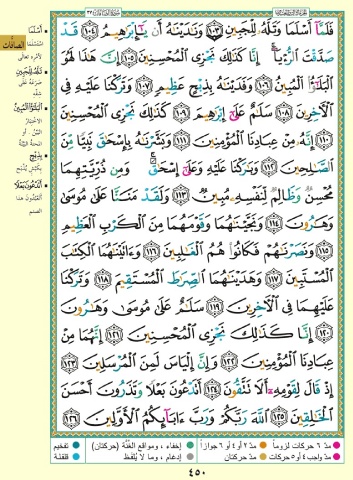 فَلَمَّآ أَسْلَمَا وَتَلَّهُۥ لِلْجَبِينِ ١٠٣ وَنَٰدَيْنَٰهُ أَن يَٰٓإِبْرَٰهِيمُ ١٠٤ قَدْ
صَدَّقْتَ ٱلرُّءْيَآ إِنَّا كَذَٰلِكَ نَجْزِى ٱلْمُحْسِنِينَ ١٠٥ إِنَّ هَٰذَا لَهُوَ
ٱلْبَلَٰٓؤُا۟ ٱلْمُبِينُ ١٠٦ وَفَدَيْنَٰهُ بِذِبْحٍ عَظِيمٍ ١٠٧ وَتَرَكْنَا عَلَيْهِ فِى
ٱلْءَاخِرِينَ ١٠٨ سَلَٰمٌ عَلَىٰٓ إِبْرَٰهِيمَ ١٠٩ كَذَٰلِكَ نَجْزِى ٱلْمُحْسِنِينَ
١١٠ إِنَّهُۥ مِنْ عِبَادِنَا ٱلْمُؤْمِنِينَ ١١١ وَبَشَّرْنَٰهُ بِإِسْحَٰقَ نَبِيًّا مِّنَ
ٱلصَّٰلِحِينَ ١١٢ وَبَٰرَكْنَا عَلَيْهِ وَعَلَىٰٓ إِسْحَٰقَ وَمِن ذُرِّيَّتِهِمَا
مُحْسِنٌ وَظَالِمٌ لِّنَفْسِهِۦ مُبِينٌ ١١٣ وَلَقَدْ مَنَنَّا عَلَىٰ مُوسَىٰ
وَهَٰرُونَ ١١٤ وَنَجَّيْنَٰهُمَا وَقَوْمَهُمَا مِنَ ٱلْكَرْبِ ٱلْعَظِيمِ
١١٥ وَنَصَرْنَٰهُمْ فَكَانُوا۟ هُمُ ٱلْغَٰلِبِينَ ١١٦ وَءَاتَيْنَٰهُمَا ٱلْكِتَٰبَ
ٱلْمُسْتَبِينَ ١١٧ وَهَدَيْنَٰهُمَا ٱلصِّرَٰطَ ٱلْمُسْتَقِيمَ ١١٨ وَتَرَكْنَا
عَلَيْهِمَا فِى ٱلْءَاخِرِينَ ١١٩ سَلَٰمٌ عَلَىٰ مُوسَىٰ وَهَٰرُونَ
١٢٠ إِنَّا كَذَٰلِكَ نَجْزِى ٱلْمُحْسِنِينَ ١٢١ إِنَّهُمَا مِنْ
عِبَادِنَا ٱلْمُؤْمِنِينَ ١٢٢ وَإِنَّ إِلْيَاسَ لَمِنَ ٱلْمُرْسَلِينَ ١٢٣
إِذْ قَالَ لِقَوْمِهِۦٓ أَلَا تَتَّقُونَ ١٢٤ أَتَدْعُونَ بَعْلًا وَتَذَرُونَ أَحْسَنَ
ٱلْخَٰلِقِينَ ١٢٥ ٱللَّهَ رَبَّكُمْ وَرَبَّ ءَابَآئِكُمُ ٱلْأَوَّلِينَ ١٢٦
الصَّافَّات
أَسْلَمَا
تَلَّهُ لِلْجَبِينِ
بِذِبْحٍ
أَتَدْعُونَ بَعْلًا
الصنم
مدّ ٦ حركات لزوماً
مدّ ٢ أو ٤ أو ٦ جوازاً
إخفاء، ومواقع الغُنَّة (حركتان)
تفخيم
مدّ واجب ٤ أو ٥ حركات
مدّ حركتان
إدغام، وما لا يُلفظ
قلقلة
٤٥٠